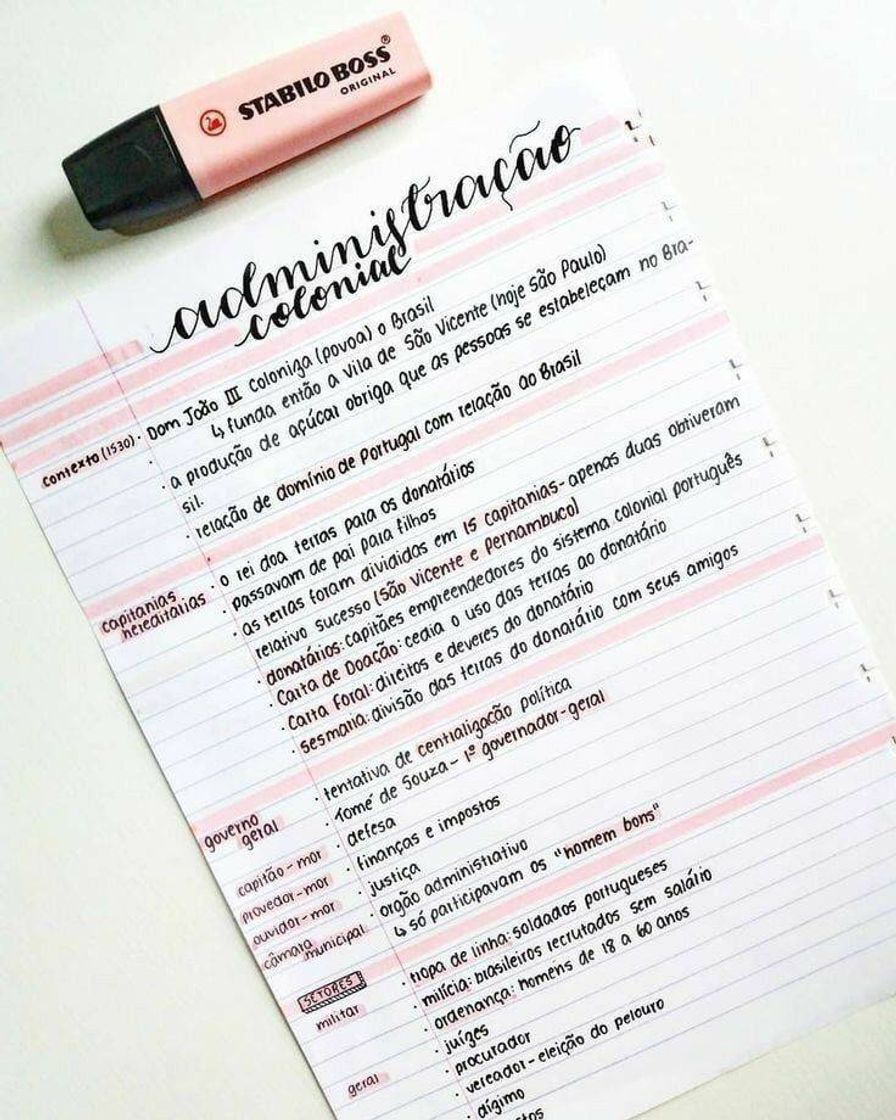 STABILO BOSS®
ORIGINAL
administração
colonial
contexto (1530) · Dom João III coloniza (povoa) o Brasil
↳ funda então a Vila de São Vicente (hoje São Paulo)
· a produção de açúcar obriga que as pessoas se estabeleçam no Bra-
sil.
· relação de domínio de Portugal com relação ao Brasil
capitanias
hereditárias
· o rei doa terras para os donatários
· passavam de pai para filhos
· as terras foram divididas em 15 capitanias - apenas duas obtiveram
relativo sucesso (São Vicente e Pernambuco)
· donatários: capitães empreendedores do sistema colonial português
· Carta de Doação: cedia o uso das terras ao donatário
· Carta Foral: direitos e deveres do donatário
· sesmaria: divisão das terras do donatário com seus amigos
governo
geral
· tentativa de centralização política
· Tomé de Souza - 1º governador-geral
capitão-mor · defesa
provedor-mor · finanças e impostos
ouvidor-mor · justiça
câmara
municipal
· orgão administrativo
↳ só participavam os "homem bons"
SETORES
militar
· tropa de linha: soldados portugueses
· milícia: brasileiros recrutados sem salário
· ordenança: homens de 18 a 60 anos
geral
· juízes
· procurador
· vereador - eleição do pelouro
· dígimo